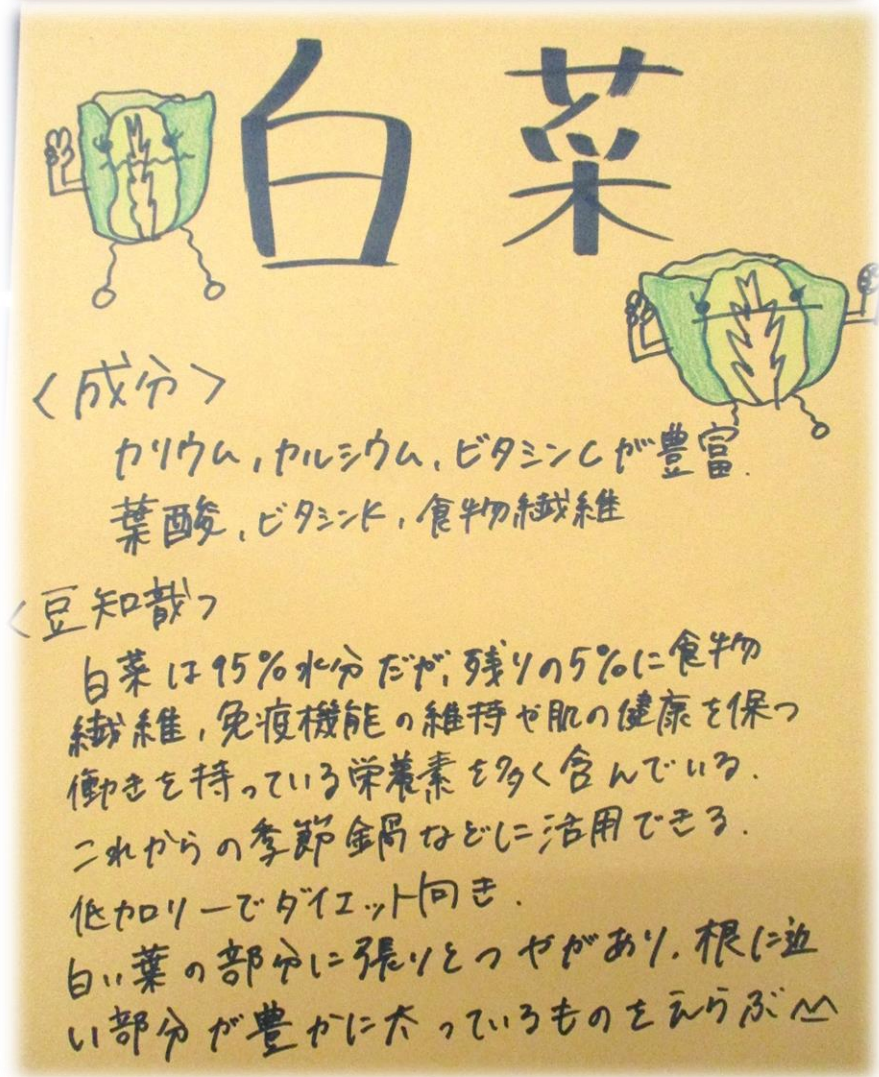 白菜
<成分>
カリウム,カルシウム,ビタミンCが豊富.
葉酸,ビタミンK,食物繊維
<豆知識>
白菜は95%水分だが,残りの5%に食物
繊維,免疫機能の維持や肌の健康を保つ
働きを持っている栄養素を多く含んでいる.
これからの季節鍋などに活用できる.
低カロリーでダイエット向き.
白い葉の部分に張りとつやがあり,根に近
い部分が豊かに太っているものをえらぶ